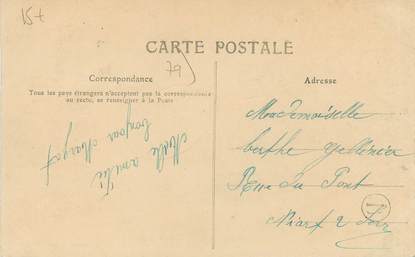 15+
79
CARTE POSTALE
Correspondance
Tous les pays étrangers n'acceptent pas la correspondance
au recto, se renseigner à la Poste
Mille amitié
bonjour
Adresse
Mademoiselle
berthe
Rue du Pont
Niort 2 Sèv